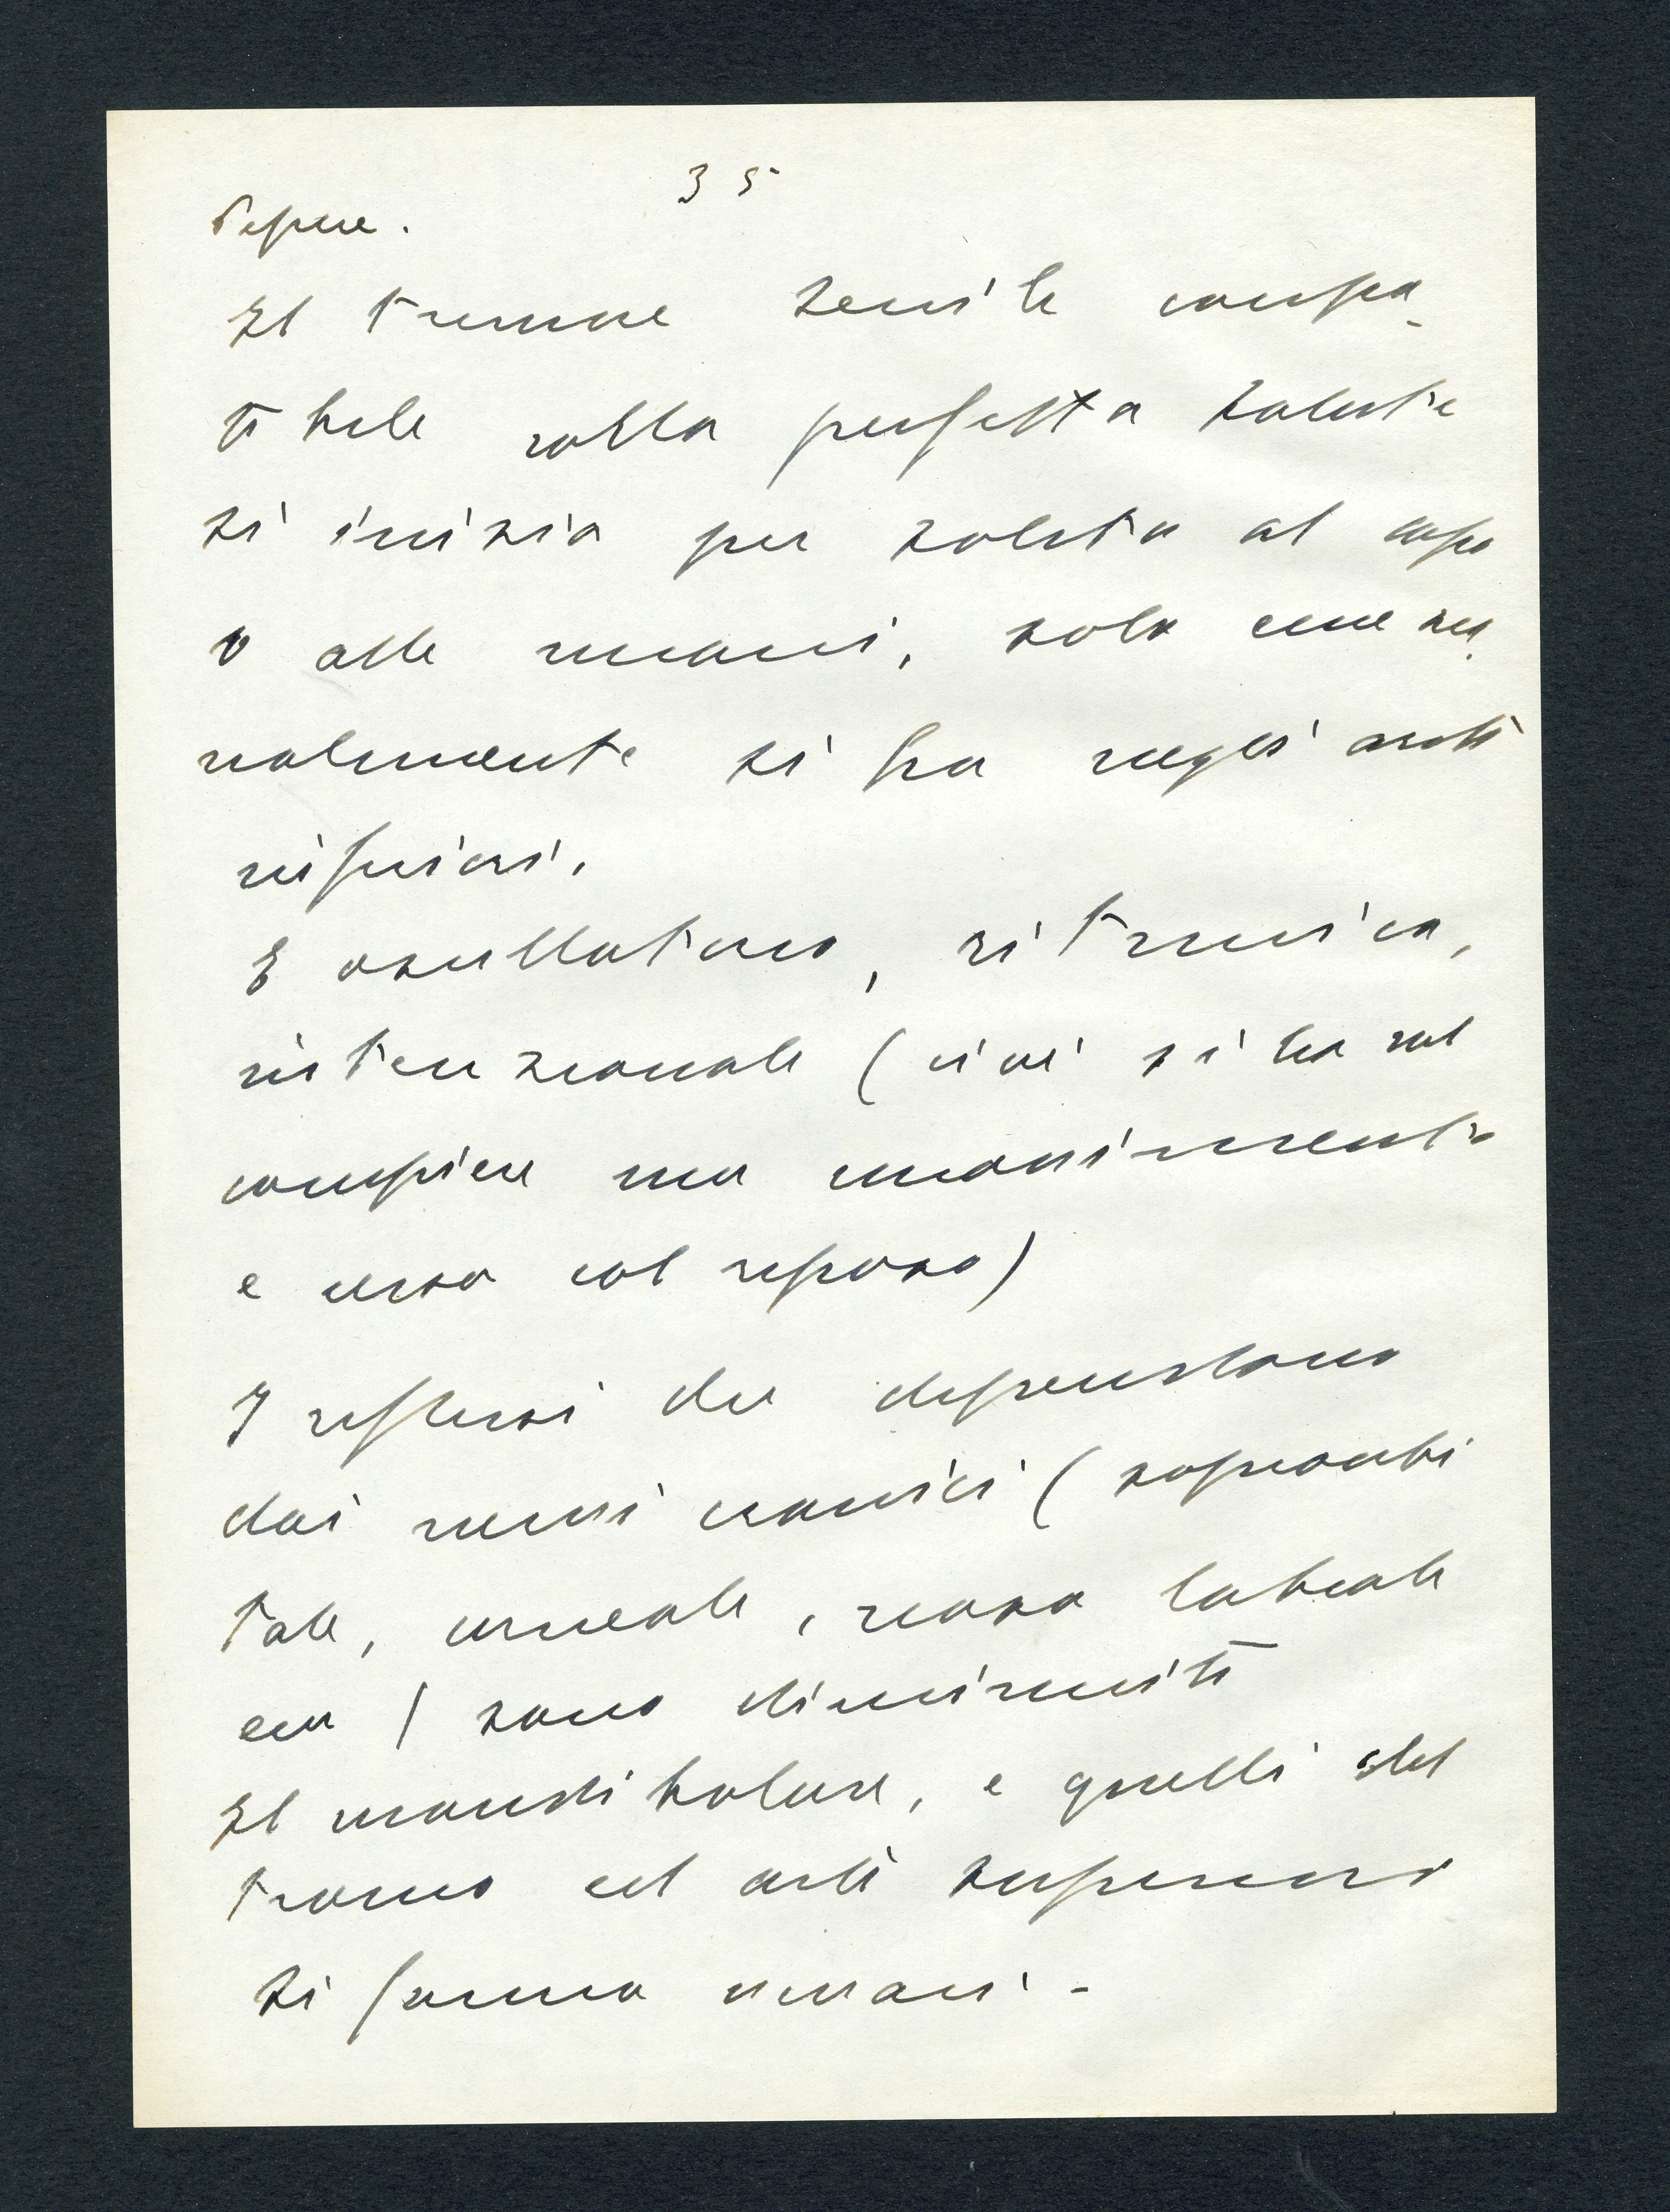 35
Il tremore senile compa-
tibile colla perfetta salute
si inizia per solito al capo
o alle mani, solo ecce zio
nalmente si ha negli arti
inferiori.
È oscillatorio, ritmico,
intenzionale (cioè si ha nel
compiere un movimento
e cessa col riposo)
I riflessi che dipendono
dai nervi cranici (sopraorbi
tale, corneale, naso labiale
ecc) sono diminuiti
Il mandibolare, e quelli del
tronco ed arti superiori
si fanno vivaci -